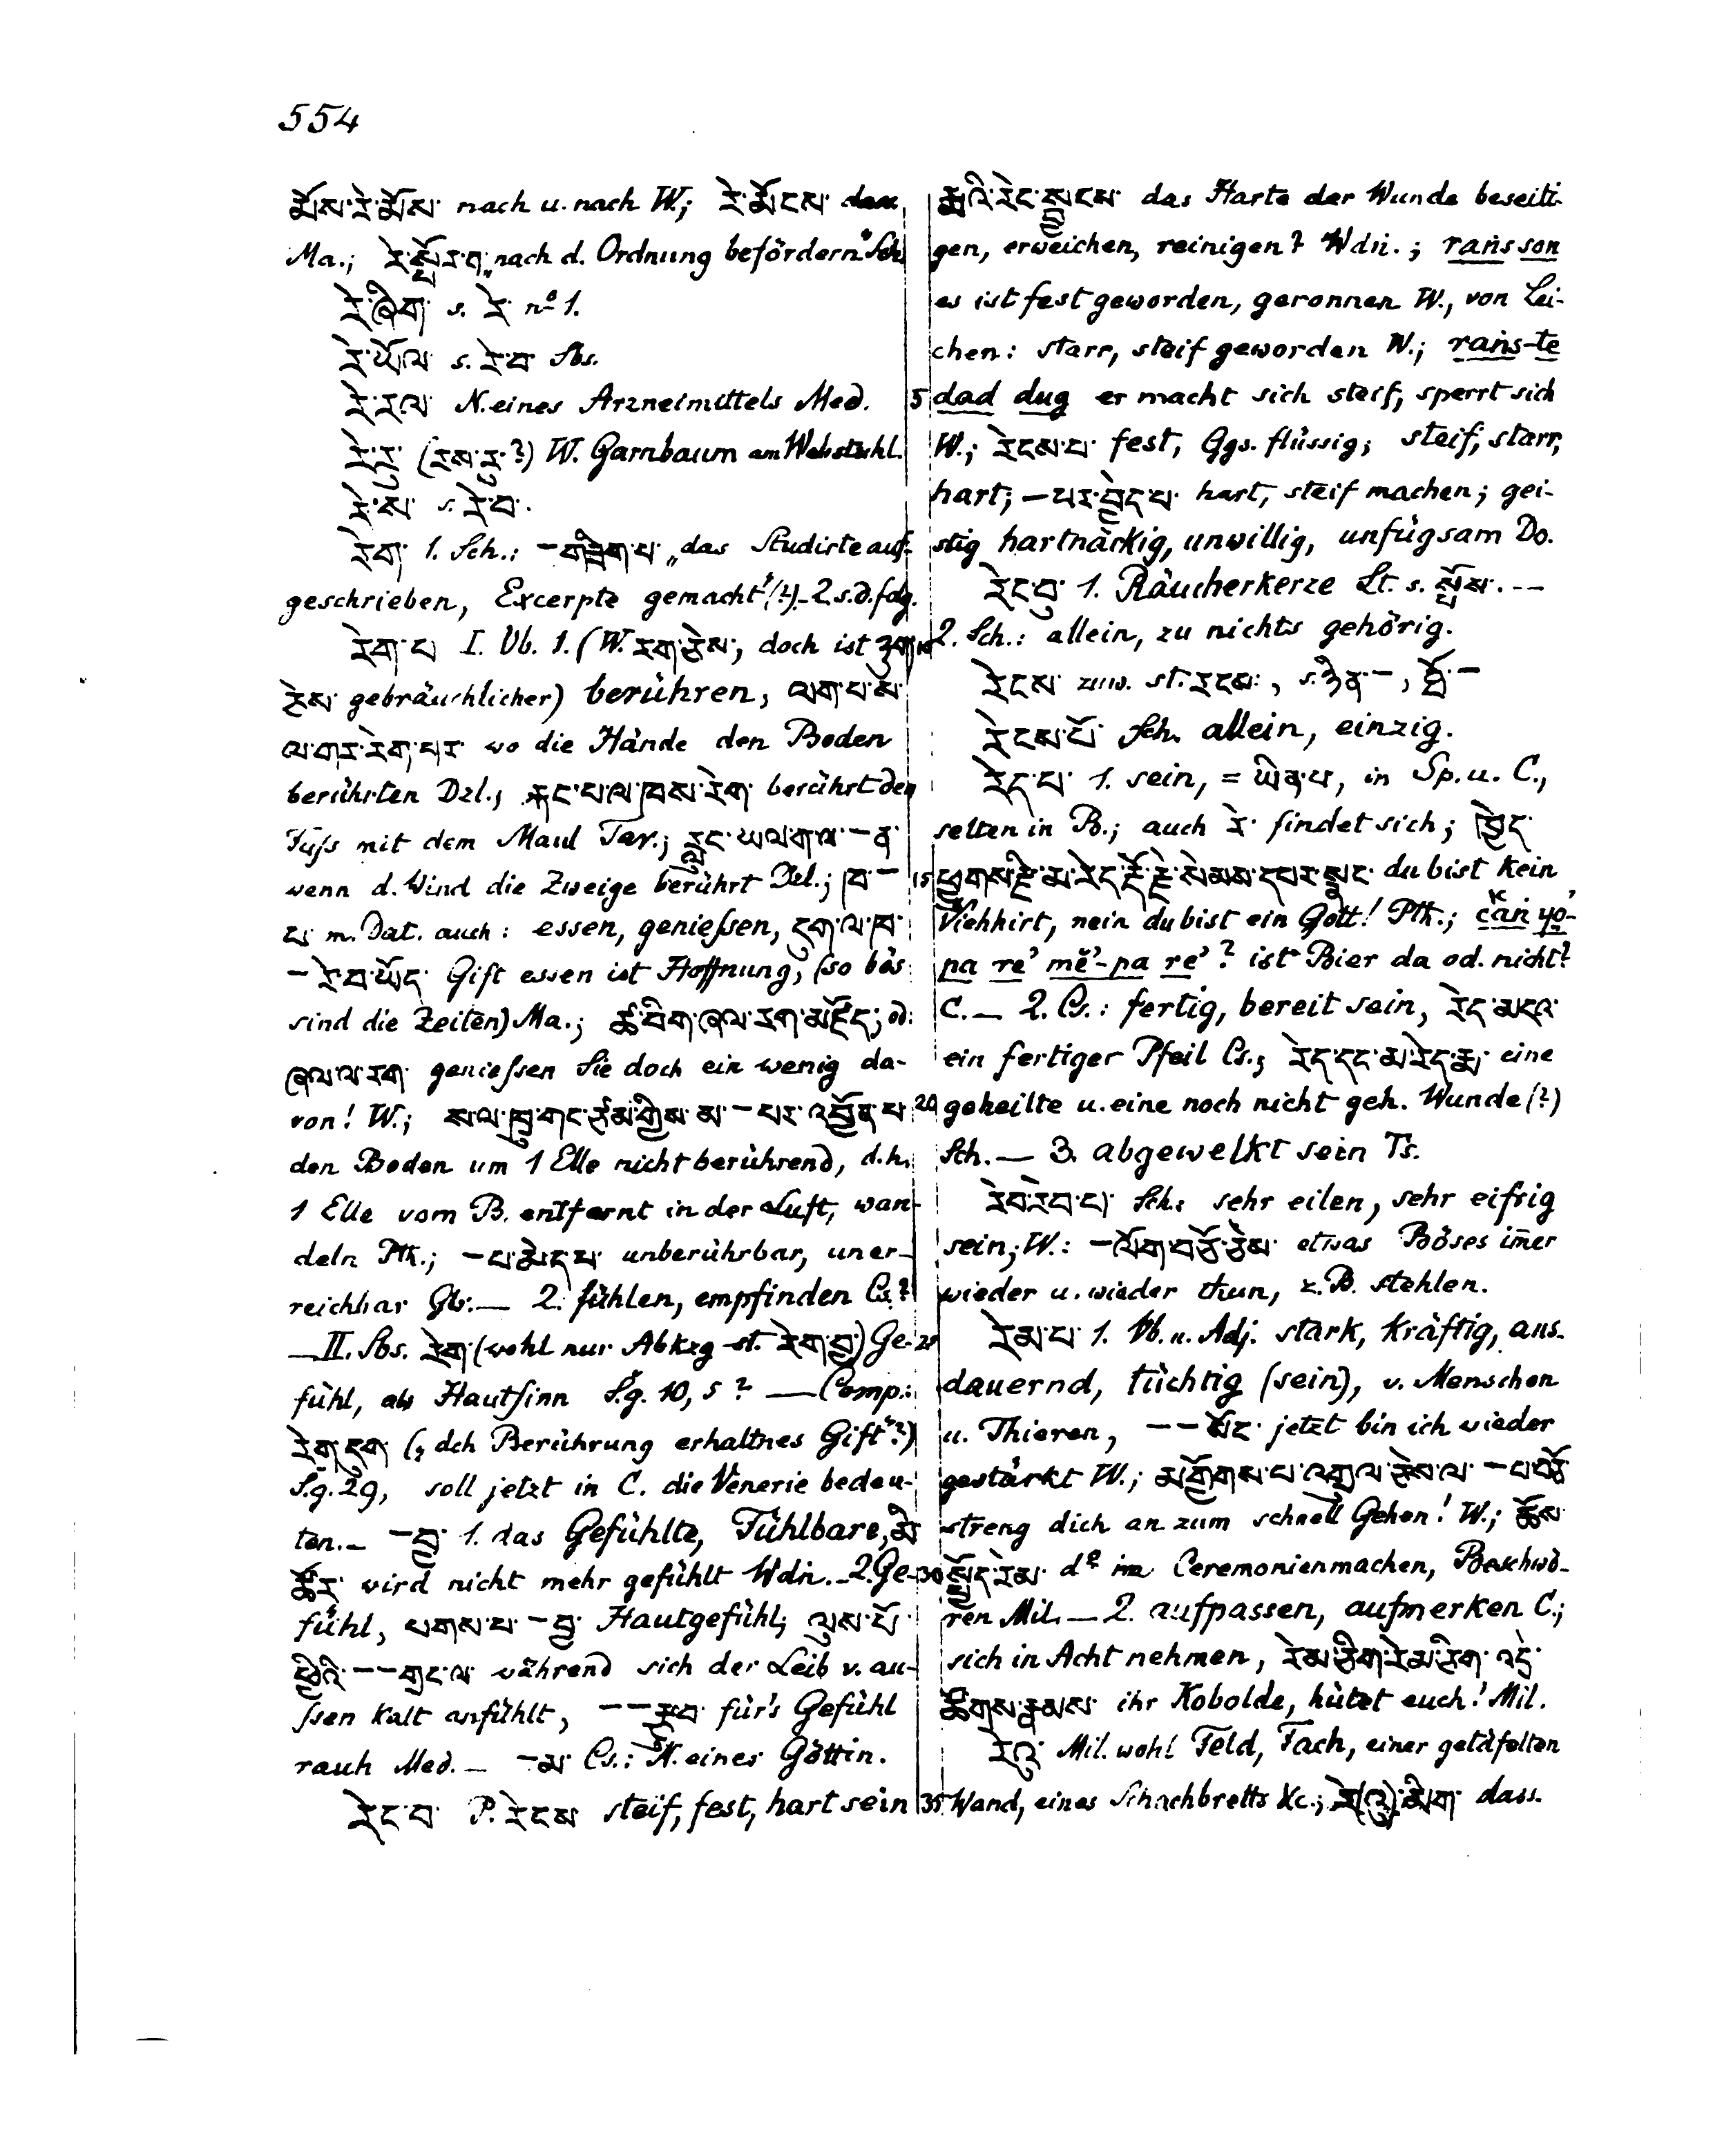 554
མོས་རེ་མོས་ nach u. nach W.; རེ་མོངས་ dem
Ma.; རེ་སྐོར་ག་ „nach d. Ordnung befördern" Sch.
རེ་ཞིག་ s. རེ་ nº 1.
རེ་ཡོལ་ s. རེ་བ་ Sbs.
རེ་རལ་ N. eines Arzneimittels Med.
རེ་རུ་ (རས་རུ་?) W. Garnbaum am Webstuhl.
རེ་ས་ s. རེ་བ་.
རེག་ 1. Sch.: – གཟིག་པ་ „das Studirte auf-
geschrieben, Excerpte gemacht"(?) – 2. s. d. fdg.
རེག་པ་ I. Vb. 1. (W. རག་ཅེས་, doch ist
ཅེས་ gebräuchlicher) berühren, ལག་པ་ས་
ལ་གར་རེག་པར་ wo die Hände den Boden
berührten Dzl.; རྐང་པ་ལ་ཁས་རེག་ berührt den
Fuſs mit dem Maul Tar.; རླུང་ཡལ་གལ་ – ན་
wenn d. Wind die Zweige berührt Del.; ཁ་ –
པ་ m. Dat. auch: essen, genieſsen, དུག་ལ་ཁ་
– རེ་བ་ཡོད་ Gift essen ist Hoffnung, (so bös
sind die Zeiten) Ma.; ཙ་བིག་ཞལ་རག་མཛོད་; od.
ཞལ་ལ་རག་ genieſsen Sie doch ein wenig da-
von! W.; ས་ལ་ཁྲུ་གང་ཙམ་གྱིས་མ་ – པར་འགྲོན་པ་
den Boden um 1 Elle nicht berührend, d.h.
1 Elle vom B. entfernt in der Luft, wan-
deln Pth.; – པ་མེད་པ་ unberührbar, uner-
reichbar Glr. — 2. fühlen, empfinden Cs.?
— II. Sbs. རེག་ (wohl nur Abkzg st. རེག་བྱ་) Ge-
fühl, als Hautsinn S.g. 10, 5? — Comp.:
རེག་དུག་ („dch Berührung erhaltnes Gift"?)
S.g. 29, soll jetzt in C. die Venerie bedeu-
ten. – – བྱ་ 1. das Gefühlte, Fühlbare, མི་
ཚོར་ wird nicht mehr gefühlt Wdn. – 2. Ge-
fühl, པགས་པ་ – བྱ་ Hautgefühl; ལུས་པོ་
ཕྱིའི་ – – གྲང་ལ་ während sich der Leib v. au-
ſsen kalt anfühlt, – – རྩུབ་ für's Gefühl
rauh Med. — – མ་ Cs.: N. einer Göttin.
རེང་བ་ P. རེངས་ steif, fest, hart sein
རྨའི་རེང་སྦྱངས་ das Harte der Wunde beseiti-
gen, erweichen, reinigen? Wdn.; raṅs soṅ
es ist fest geworden, geronnen W., von Lei-
chen: starr, steif geworden W.; raṅs-te
5 dad dug er macht sich steif, sperrt sich
W.; རེངས་པ་ fest, Ggs. flüssig; steif, starr,
hart; – པར་བྱེད་པ་ hart, steif machen; gei-
stig hartnäckig, unwillig, unfügsam Do.
རེང་བུ་ 1. Räucherkerze Lt. s. སྤོས་. --
10 2. Sch.: allein, zu nichts gehörig.
རེངས་ zuw. st. རངས་, s. ཉིན་ – , ཐོ་ –
རེངས་པོ་ Sch. allein, einzig.
རེད་པ་ 1. sein, = ཡིན་པ་, in Sp. u. C.,
selten in B.; auch རེ་ findet sich; ཁྱེད་
15 ཕྱུགས་རྫི་མ་རེད་རྡོ་རྗེ་སེམས་དཔར་སྣང་ du bist kein
Viehhirt, nein du bist ein Gott! Pth.; c̆aṅ yo'-
pa re' mĕ'-pa re'? ist Bier da od. nicht?
C. — 2. Cs.: fertig, bereit sein, རེད་མདའ་
ein fertiger Pfeil Cs.; རེད་དང་མ་རེད་རྨ་ eine
20 geheilte u. eine noch nicht geh. Wunde (?)
Sch. — 3. abgewelkt sein Ts.
རེབ་རེབ་པ་ Sch.: sehr eilen, sehr eifrig
sein; W.: – ལོག་བཅོ་ཅེས་ etwas Böses im̄er
wieder u. wieder thun, z.B. stehlen.
25 རེམ་པ་ 1. Vb. u. Adj. stark, kräftig, aus-
dauernd, tüchtig (sein), v. Menschen
u. Thieren, – – སོང་ jetzt bin ich wieder
gestärkt W.; མགྱོགས་པ་འགྲུལ་ཅེས་ལ་ – པ་བཅོ་
streng dich an zum schnell Gehen! W.; ཆོས་
30 སྤྱོད་རེམ་ dº im Ceremonienmachen, Beschwö-
ren Mil. — 2. aufpassen, aufmerken C.;
sich in Acht nehmen, རེམ་ཅིག་རེམ་ཅིག་འདྲེ་
ཚོགས་རྣམས་ ihr Kobolde, hütet euch! Mil.
རེའུ་ Mil. wohl Feld, Fach, einer getäfelten
35 Wand, eines Schachbretts &c.; རེ(འུ)་མིག་ dass.